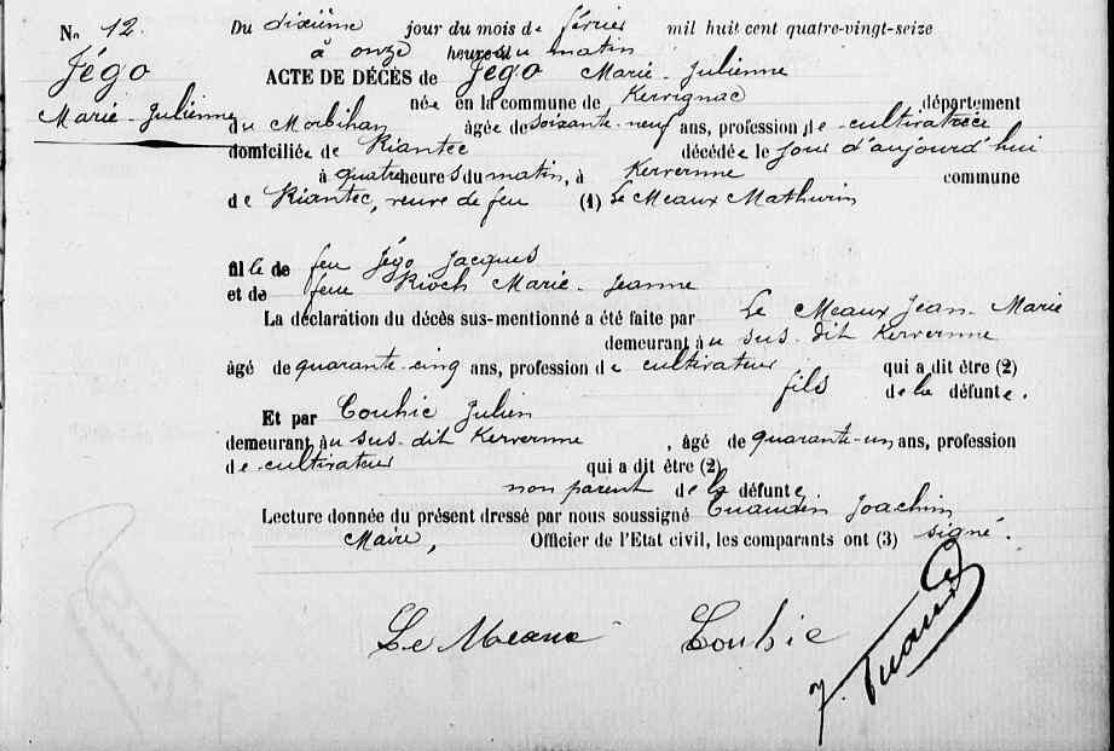 No 12.
Jégo
Marie-Julienne
Du dixième jour du mois de février mil huit cent quatre-vingt-seize
à onze heures du matin
ACTE DE DÉCÈS de Jégo Marie-Julienne
née en la commune de Kervignac département
du Morbihan âgée de soixante-neuf ans, profession de cultivatrice
domiciliée de Riantec décédée le jour d'aujourd'hui
à quatre heures du matin, à Kervernne commune
de Riantec, veuve de feu (1) Le Meaux Mathurin
fille de feu Jégo Jacques
et de feue Rioch Marie-Jeanne
La déclaration du décès sus-mentionné a été faite par Le Meaux Jean-Marie
demeurant au sus-dit Kervernne
âgé de quarante-cinq ans, profession de cultivateur qui a dit être (2)
fils de la défunte.
Et par Couhic Julien
demeurant au sus-dit Kervernne, âgé de quarante-un ans, profession
de cultivateur qui a dit être (2)
non parent de la défunte
Lecture donnée du présent dressé par nous soussigné Tuaudin Joachim
Maire, Officier de l'Etat civil, les comparants ont (3) signé.
Le Meaux Couhic